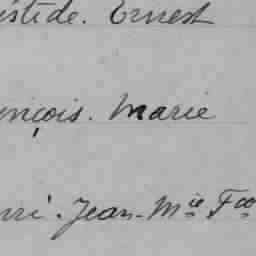 istide. Ernest
ençois. Marie
nri. Jean-Mie Fco